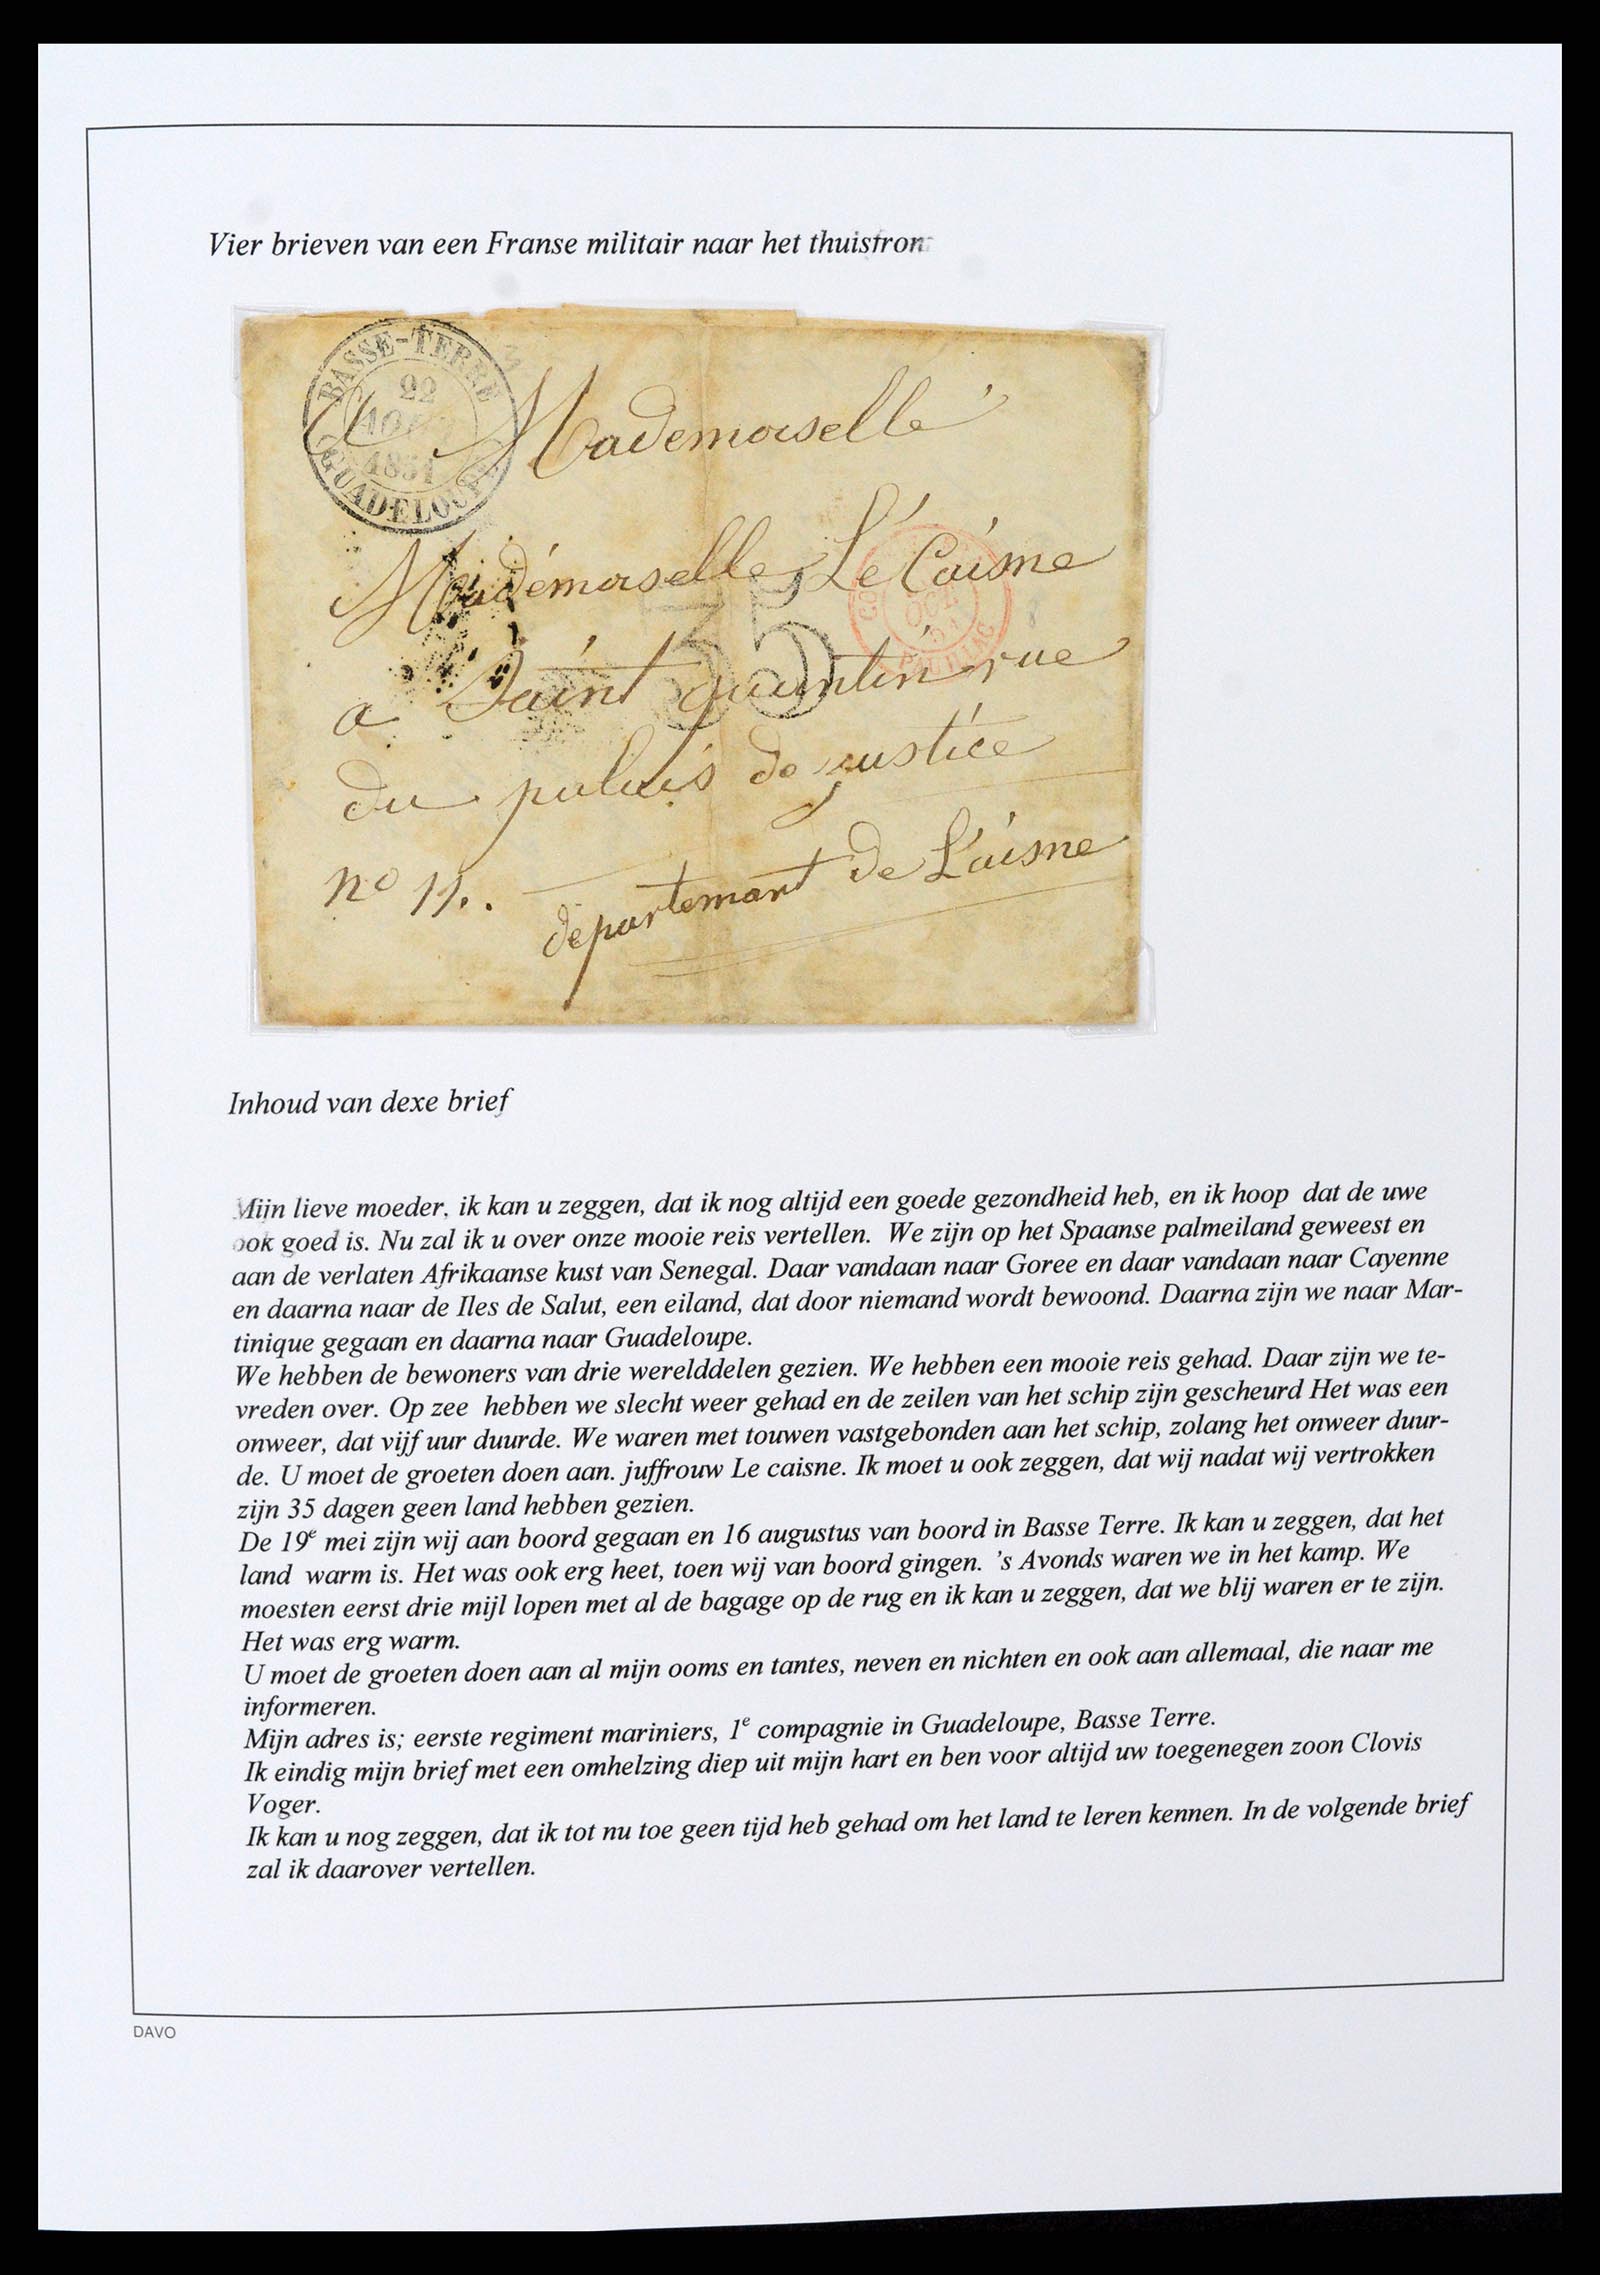 Vier brieven van een Franse militair naar het thuisfron
BASSE-TERRE
22
AOUT
1851
GUADELOUPE
Mademoiselle
Mademoiselle Le Caisne
35
OCT
51
PAUILLAC
a Saint quintin rue
du palais de justice
no 11..
departemant de L'aisne
Inhoud van dexe brief
Mijn lieve moeder, ik kan u zeggen, dat ik nog altijd een goede gezondheid heb, en ik hoop dat de uwe
ook goed is. Nu zal ik u over onze mooie reis vertellen. We zijn op het Spaanse palmeiland geweest en
aan de verlaten Afrikaanse kust van Senegal. Daar vandaan naar Goree en daar vandaan naar Cayenne
en daarna naar de Iles de Salut, een eiland, dat door niemand wordt bewoond. Daarna zijn we naar Mar-
tinique gegaan en daarna naar Guadeloupe.
We hebben de bewoners van drie werelddelen gezien. We hebben een mooie reis gehad. Daar zijn we te-
vreden over. Op zee hebben we slecht weer gehad en de zeilen van het schip zijn gescheurd Het was een
onweer, dat vijf uur duurde. We waren met touwen vastgebonden aan het schip, zolang het onweer duur-
de. U moet de groeten doen aan. juffrouw Le caisne. Ik moet u ook zeggen, dat wij nadat wij vertrokken
zijn 35 dagen geen land hebben gezien.
De 19e mei zijn wij aan boord gegaan en 16 augustus van boord in Basse Terre. Ik kan u zeggen, dat het
land warm is. Het was ook erg heet, toen wij van boord gingen. 's Avonds waren we in het kamp. We
moesten eerst drie mijl lopen met al de bagage op de rug en ik kan u zeggen, dat we blij waren er te zijn.
Het was erg warm.
U moet de groeten doen aan al mijn ooms en tantes, neven en nichten en ook aan allemaal, die naar me
informeren.
Mijn adres is; eerste regiment mariniers, 1e compagnie in Guadeloupe, Basse Terre.
Ik eindig mijn brief met een omhelzing diep uit mijn hart en ben voor altijd uw toegenegen zoon Clovis
Voger.
Ik kan u nog zeggen, dat ik tot nu toe geen tijd heb gehad om het land te leren kennen. In de volgende brief
zal ik daarover vertellen.
DAVO